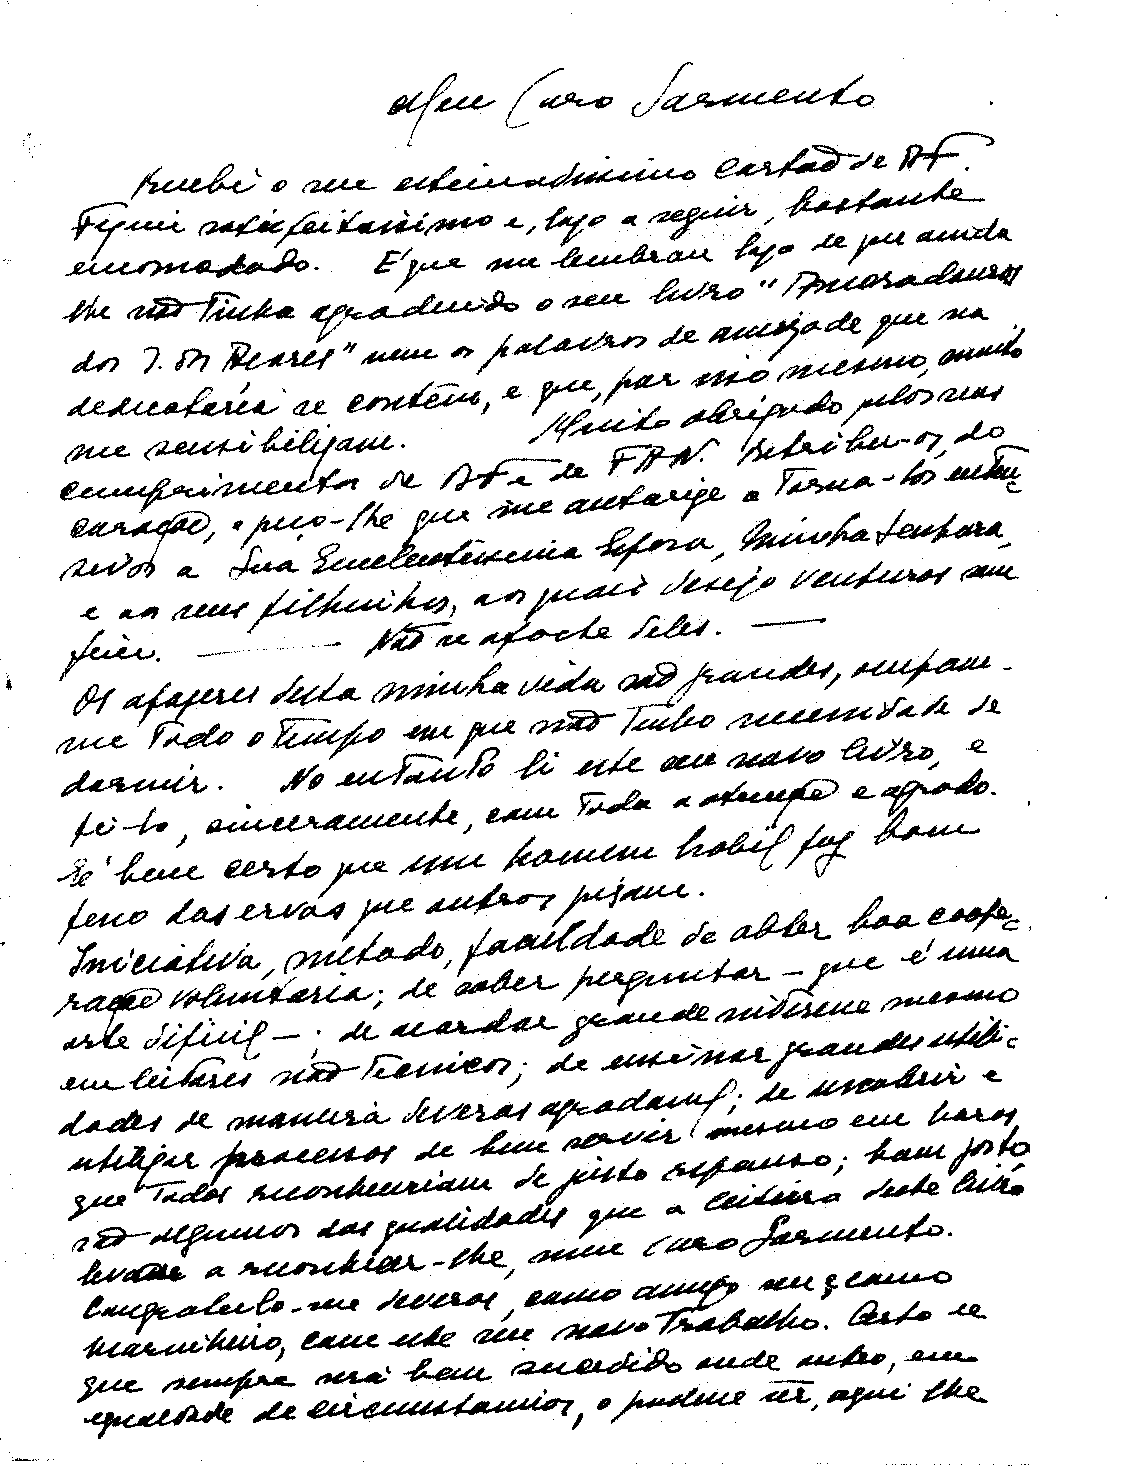 Meu Caro Sarmento
Recebi o seu estimadissimo Cartão de BF.
Fiquei satisfeitissimo e, logo a seguir, bastante
encomodado. É que me lembrou logo de que ainda
lhe não tinha agradecido o seu livro "Ancoradouros
dos Açores" nem as palavras de amizade que na
dedicatória se contêm, e que, por isso mesmo, muito
me sensibilizam. Muito obrigado pelos seus
cumprimentos de BF e de FAN. Retribuo-os, do
coração, e peço-lhe que me autorize a torna-los exten-
sivos a Sua Excelentissima Esposa, Minha Senhora,
e aos seus filhinhos, aos quais desejo venturas sem
fim. Não se afaste deles.
Os afazeres desta minha vida são grandes, ocupam-
me todo o tempo em que não tenho necessidade de
dormir. No entanto li este seu novo livro, e
fi-lo, sinceramente, com toda a atenção e agrado.
É bem certo que um homem habil faz bom
feno das ervas que outros pisam.
Iniciativa, método, faculdade de obter boa coope-
ração voluntária; de saber perguntar - que é uma
arte dificil - ; de acordar grande interesse mesmo
em leitores não tecnicos; de ensinar grandes utili-
dades de maneira deveras agradavel; de descobrir e
utilizar processos de bem servir mesmo em horas
que todos reconheceriam de justo repouso; bom gosto
são algumas das qualidades que a leitura deste livro
levou a reconhecer-lhe, meu caro Sarmento.
Congratulo-me deveras, como amigo seu e como
marinheiro, com este seu novo trabalho. Certo de
que sempre será bem sucedido onde outro, em
igualdade de circumstancias, o pudesse ser, aqui lhe